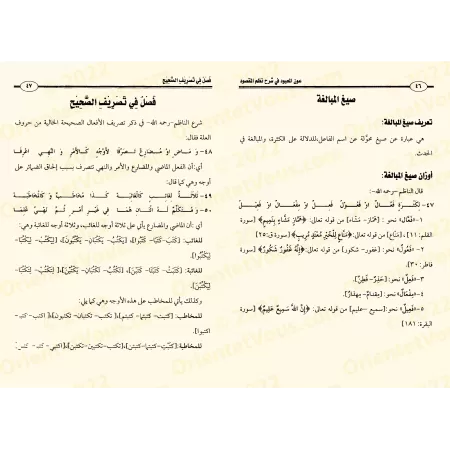 ٤٦
عون المعبود في شرح نظم المقصود
صيغ المبالغة
تعريف صيغ المبالغة:
هي عبارة عن صيغ محوَّلة عن اسم الفاعل،للدلالة على الكثرة، والمبالغة في
الحدث.
أوزان صيغ المبالغة:
قال الناظم-رحمه الله-:
٤٧-
١-«فَعَّال» نحو: [هَمَّاز- مَشَّاء] من قوله تعالى: ﴿هَمَّازٍ مَشَّاءٍ بِنَمِيمٍ﴾ [سورة
القلم: ١١]، [مَنَّاع] من قوله تعالى: ﴿مَنَّاعٍ لِلْخَيْرِ مُعْتَدٍ مُرِيبٍ﴾ [سورة ق:٢٥]
٢-«فَعُول» نحو: [غفور- شكور] من قوله تعالى: ﴿إِنَّهُ غَفُورٌ شَكُورٌ﴾ [سورة
فاطر: ٣٠].
٣-«فَعِلٌ» نحو: [حَذِرٌ- فَطِنٌ].
٤-«مِفْعَالٌ» نحو:
٥-«فَعِيلٌ» نحو: [سميع -عليم] من قوله تعالى: ﴿إِنَّ اللَّهَ سَمِيعٌ عَلِيمٌ﴾ [سورة
البقرة: ١٨١]
فصل في تصريف الصحيح
٤٧
فَصْلٌ فِي تَصْرِيْفِ الصَّحِيْحِ
شرع الناظم-رحمه الله- في ذكر تصريف الأفعال الصحيحة الخالية من حروف
العلة فقال:
٤٨- وَ مَـاضٍ اوْ مُـضَارِعٌ تَـصَرَّفَا لِأَوْجُهٍ كَـالأَمْرِ وَ النَّهْـيِ اعْرِفَا
أي:أن الفعل الماضي والمضارع والأمر والنهي تتصرف بسبب إلحاق الضمائر على
أوجه وهي كما قال:
٤٩- ثَلَاثَةٌ لِغَائِبٍ كَالْغَائِبَهْ كَذَا مُخَاطَبٌ وَ كَالْمُخَاطَبَهْ
٥٠- وَ مُتَكَلِّمٌ لَهُ اثْنَانِ هُمَا فِي غَيْرِ أَمْرٍ ثُمَّ نَهْيٍ عُلِمَا
أي :أن الفعل الماضي والمضارع يأتي على ثلاثة أوجه للغائب، وثلاثة أوجه للغائبة وهي:
للغائب: [كَتَبَ- كَتَبَا- كَتَبُوا]، [يَكْتُبُ- يَكْتُبَانِ- يَكْتُبُونَ]، [لِيَكْتُبْ- لِيَكْتُبَا-
لِيَكْتُبُوا]
للغائبة: [كَتَبَتْ- كَتَبَتَا- كَتَبْنَ]، [تَكْتُبُ- تَكْتُبَانِ- يَكْتُبْنَ]، [لِتَكْتُبْ- لِتَكْتُبَا-
لِيَكْتُبْنَ]
وكذلك يأتي للمخاطب على هذه الأوجه وهي كما يلي:
للمخاطب: [كتبتَ- كتبتما- كتبتم]، [تكتب- تكتبان- تكتبون]، [اكتب- اكتبا-
اكتبوا]
للمخاطبة: [كتبْتِ- كتبتما- كتبتن]، [تكتبين- تكتبان- تكتبن]، [اكتبي- اكتبا-